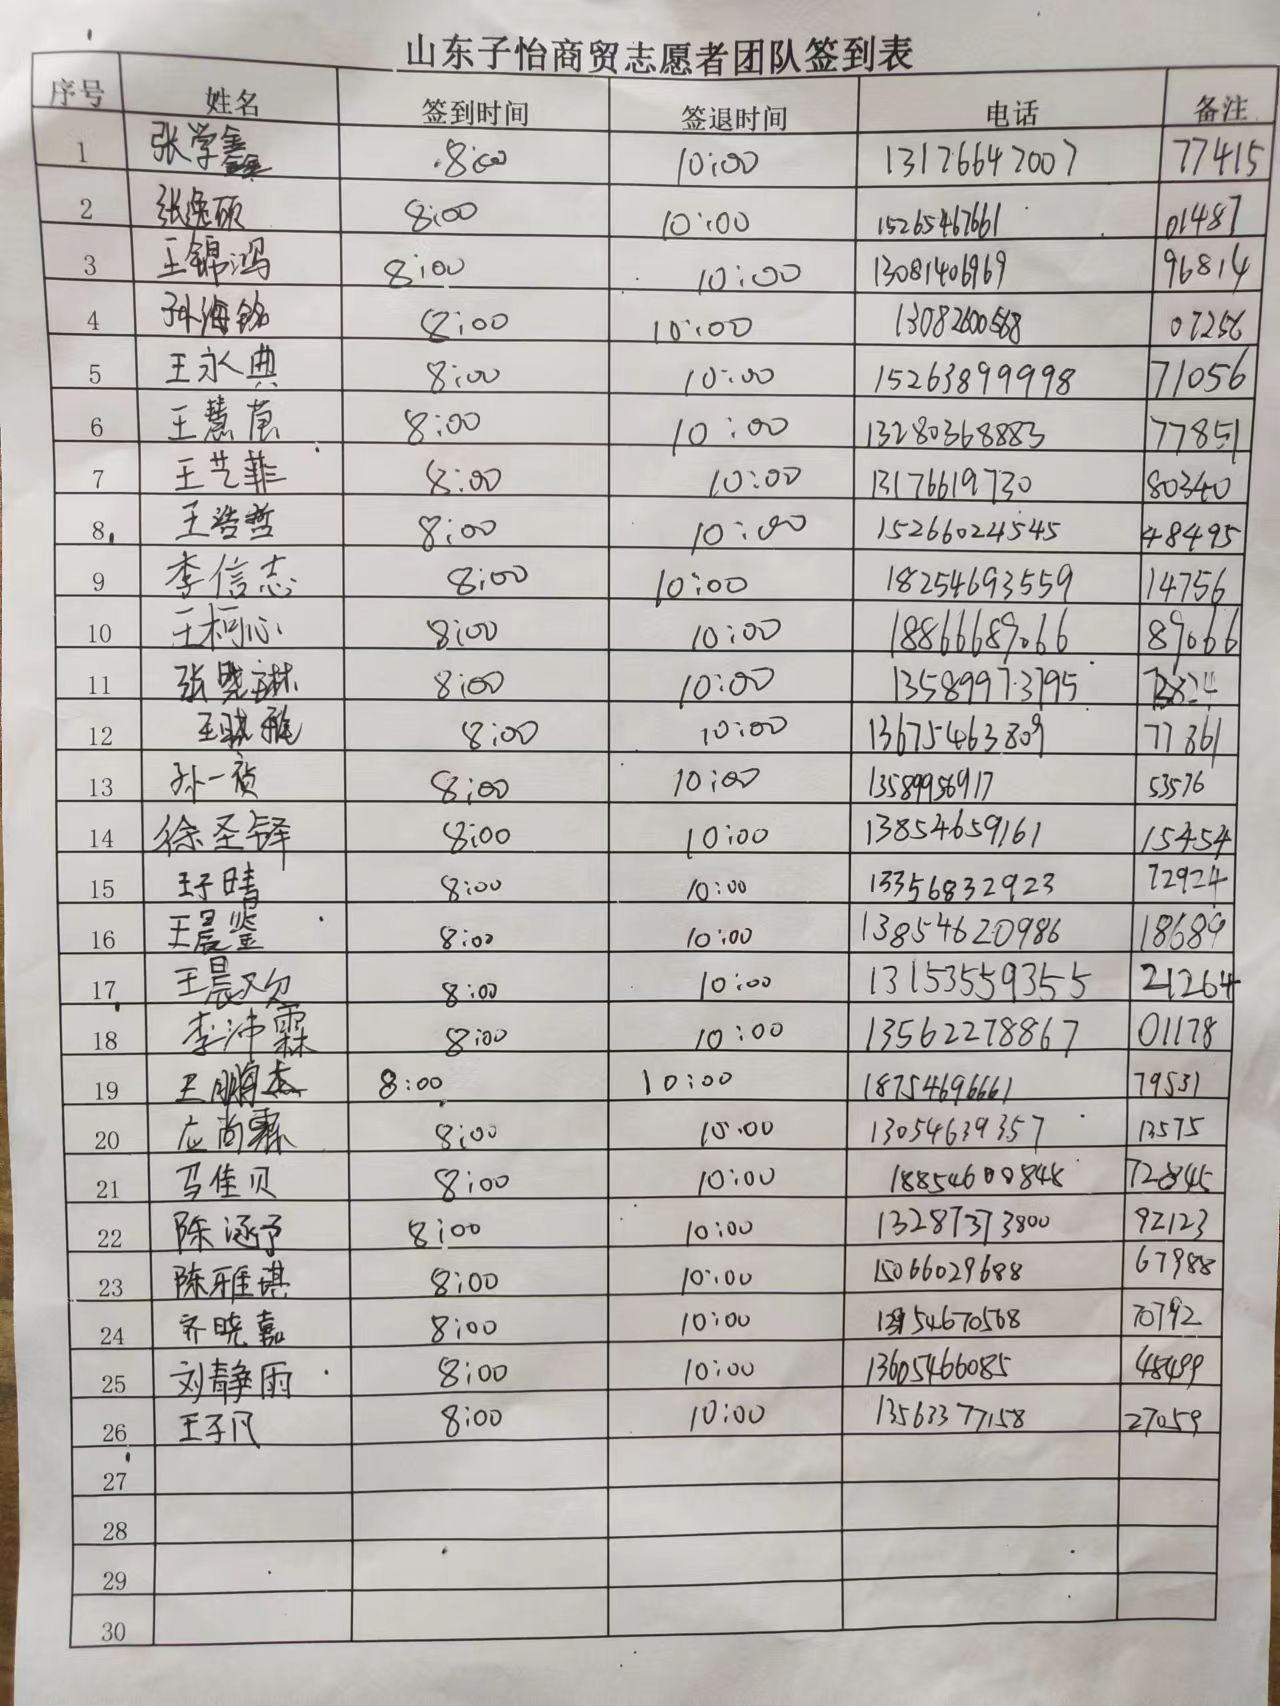 山东子怡商贸志愿者团队签到表
序号 姓名 签到时间 签退时间 电话 备注
1 张学鑫 8:00 10:00 13176647007 77415
2 张逸硕 8:00 10:00 15265467661 01487
3 王锦鸿 8:00 10:00 13081406969 96814
4 孙海铭 8:00 10:00 13082600568 07256
5 王永典 8:00 10:00 15263899998 71056
6 王慧 8:00 10:00 13280368883 77851
7 王艺菲 8:00 10:00 13176619730 80340
8 王浩哲 8:00 10:00 15266024545 48495
9 李信志 8:00 10:00 18254693559 14756
10 王柯心 8:00 10:00 18866689066 89066
11 张晓琳 8:00 10:00 13589973795
12 8:00 10:00 13675463809 77861
13 孙一祯 8:00 10:00 13589956917 53576
14 徐圣铎 8:00 10:00 13854659161 15454
15 王子晴 8:00 10:00 13356832923 72924
16 王晨鉴 8:00 10:00 13854620986 18689
17 王晨 8:00 10:00 13153559355 21264
18 李沖霖 8:00 10:00 13562278867 01178
19 王鹏杰 8:00 10:00 18754696661 79531
20 应尚霖 8:00 10:00 13054639357 13575
21 马佳贝 8:00 10:00 18854600848 72845
22 陈涵予 8:00 10:00 13287373800 92123
23 陈雅琪 8:00 10:00 15066029688 67988
24 齐晓嘉 8:00 10:00 70792
25 刘静雨 8:00 10:00 13605466085 48499
26 王子凡 8:00 10:00 13563377158 27059
27
28
29
30